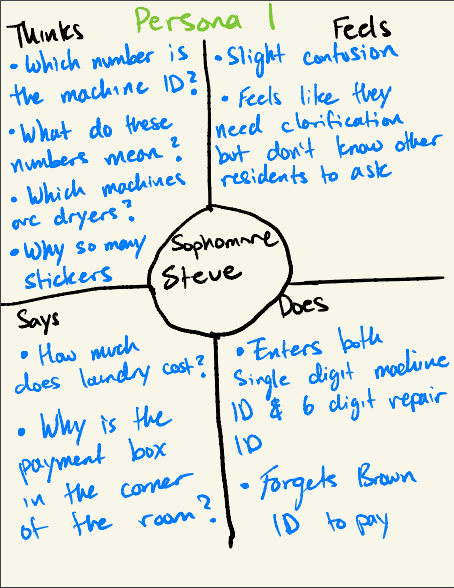 Persona 1
Thinks
• Which number is
the machine ID?
• What do these
numbers mean?
• Which machines
are dryers?
• Why so many
stickers
Feels
• Slight confusion
• Feels like they
need clarification
but don't know other
residents to ask
Sophomore
Steve
Says
• How much
does laundry cost?
• Why is the
payment box
in the corner
of the room?
Does
• Enters both
single digit machine
ID & 6 digit repair
ID
• Forgets Brown
ID to pay